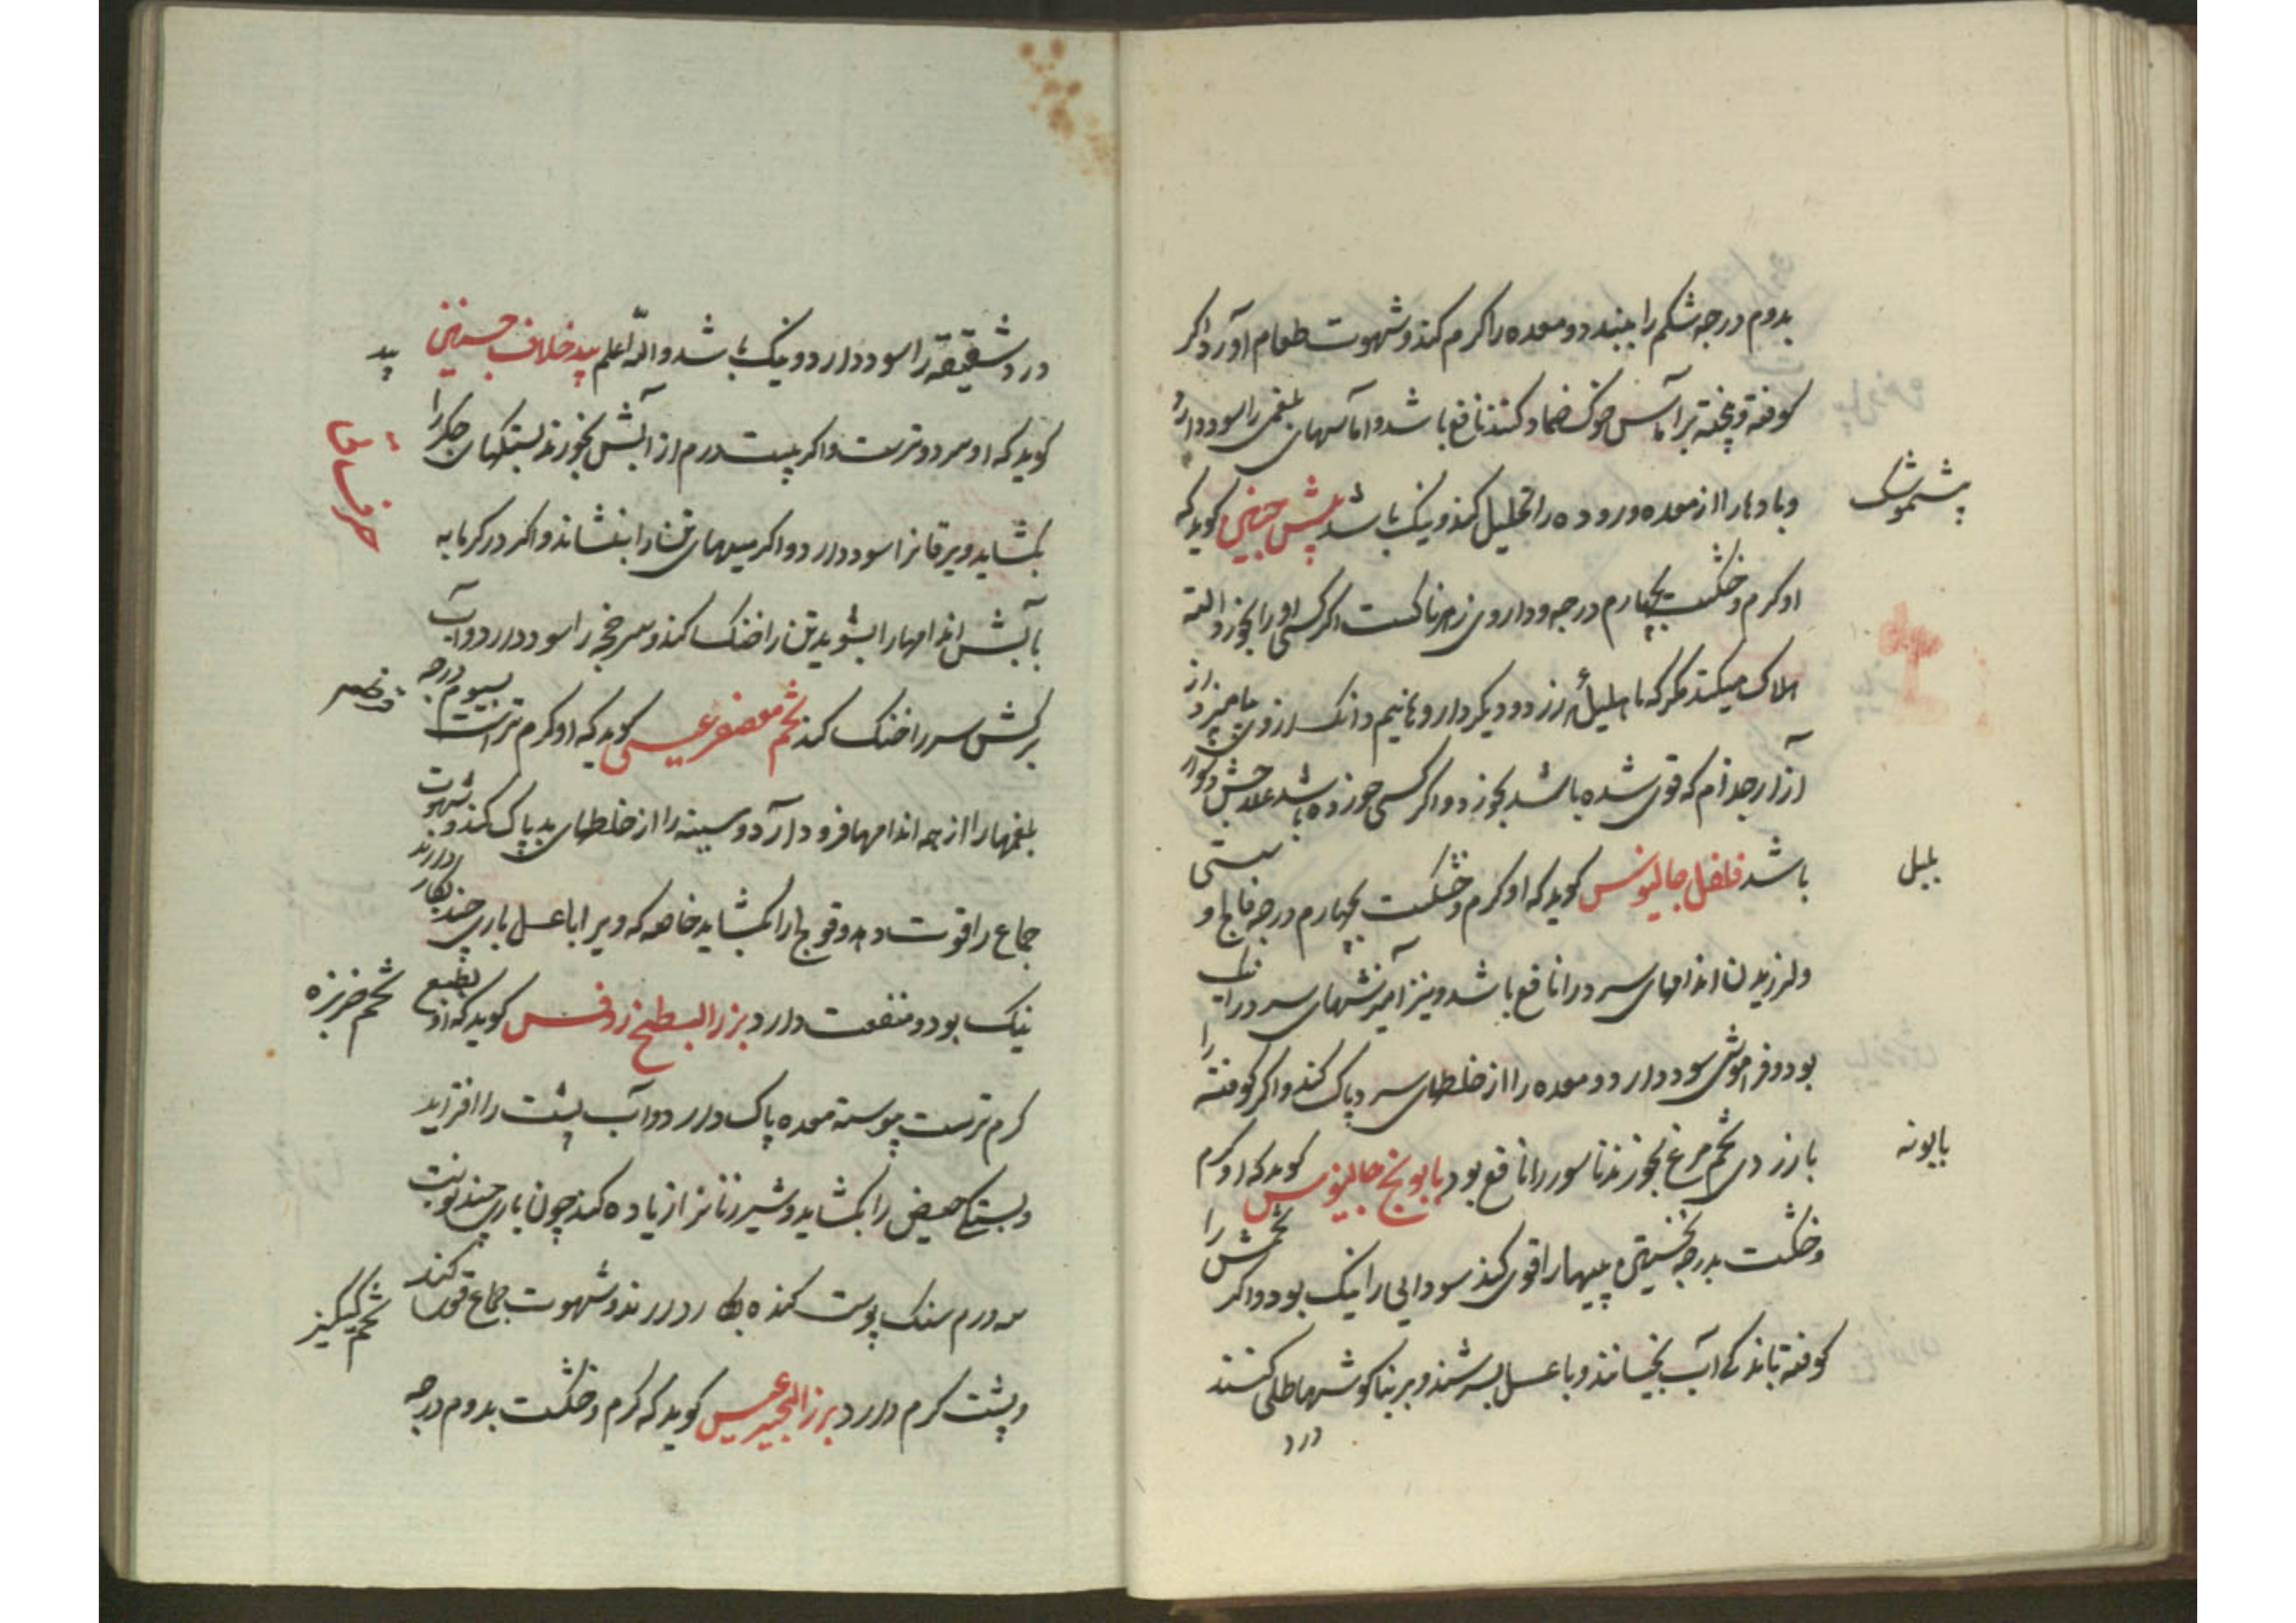 بدوم درجه شکم را ببندد و معده را کرم کند و شهوت طعام آورد و اکر
کوفته و پخته بر آماس خوک ضماد کنند نافع باشد و اماسهای بلغمی را سود دارد
و بادها را از معده و روده را تحلیل کند و نیک باشد بیش حبیش کوید که
پشموشک
او کرم و خشکست بچهارم درجه و داروی زهرناکست اکر کسی او را بخورد البته
هلاک میکند مکر که با هلیلهٔ زرد و دیکر داروها نیم دانک ازوی بیامیزد از
آزار جذام که قوی شده باشد بخورد و اکر کسی خورده باشد علاجش دشوار
باشد فلفل جالینوس کوید که او کرم و خشکست بچهارم درجه فالج و سستی
بلبل
و لرزیدن اندامهای سرد را نافع باشد و نیز آمیزشهای سرد را نیک
بود و فراموشی سود دارد و معده را از خلطهای سرد پاک کند و اکر کوفته را
با زردی تخم مرغ بخورند ناسور را نافع بود بابونج جالینوس کوید که او کرم
بابونه
و خشکست بدرجه نخستین و پیهها را قوی کند سودایی را نیک بود و اکر تخمش را
کوفته باندکی آب بخیسانند و با عسل بسرشند و بر بناکوشها طلی کنند
درد
درد شقیقه را سود دارد و نیک باشد والله اعلم بید خلاف حسینی
بید
کوید که او سرد و ترست و اکر بیست درم از آبش بخورند بستکیهای جکر را
بکشاید و یرقانرا سود دارد و اکر میلهای تن را بنشاند و اکر در کرمابه
بآبش اندامها را بشویند تن را خنک کند و سرخجه را سود دارد و آب
برکش سر را خنک کند تخم معصفر عیسی کوید که او کرم ترست بسیوم درجه
بلغمها را از همه اندامها فرود آرد و سینه را از خلطهای بد پاک کند و شهوت
جماع را قوت دهد و قولنج را بکشاید خاصه که ویرا با عسل باری چند بکار دارند
نیک بود و منفعت دارد بزر البطیخ روفس کوید که او بطبع
تخم خربزه
کرم ترست پیوسته معده پاک دارد و آب پشت را افزاید
و بستکی حیض را بکشاید و شیر زنانرا زیاده کند چون باری چند نوبت
سه درم سنک پوست کنده بکار دارند و شهوت جماع قوی کند
تخم کیکیز
و پشت کرم دارد بزر الجرجیر عیسی کوید که کرم و خشکست بدوم درجه